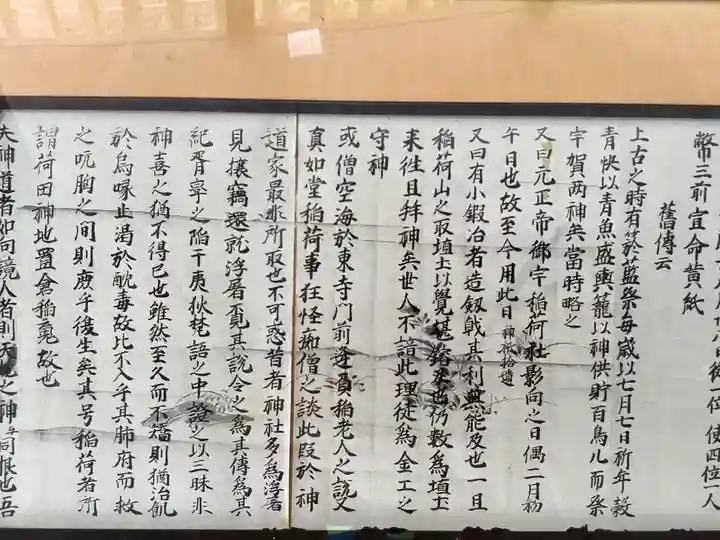 幣三前宣命黄紙
舊傳云
上古之時有於藍祭每歳以七月七日祈年穀
青快以青魚盛輿籠以神供貯百鳥儿而祭
宇賀两神矣當時略之
又曰元正帝御宇稲荷社影向之日偶二月初
午日也故至今用此日神祇拾遺
又曰有小鍛冶者造釼戟其利無能及也一旦
稲荷山之取埴土以覺甚 也仍數為埴土
来徃且拜神矣世人不諳此理徒為金工之
守神
或僧空海於東寺門前逢負稲老人之説又
真如堂稲荷事狂怪 僧之談此段於神
道家最非所取也不可惑昔者神社多為浮屠
見攘竊還就浮屠覔其説令之為其傳為其
紀胥寧之陥于夷狄 語之中證之以三昧非
神喜之猶不得已也雖然至久而不燔則猶治飢
於烏喙止渇於酖毒故比不入乎其肺府而救
之吭胸之間則庶乎後生矣其号稲荷者所
謂荷田神地置倉稲 故也
夫神道者如向鏡人者則天地之神与同根也吾